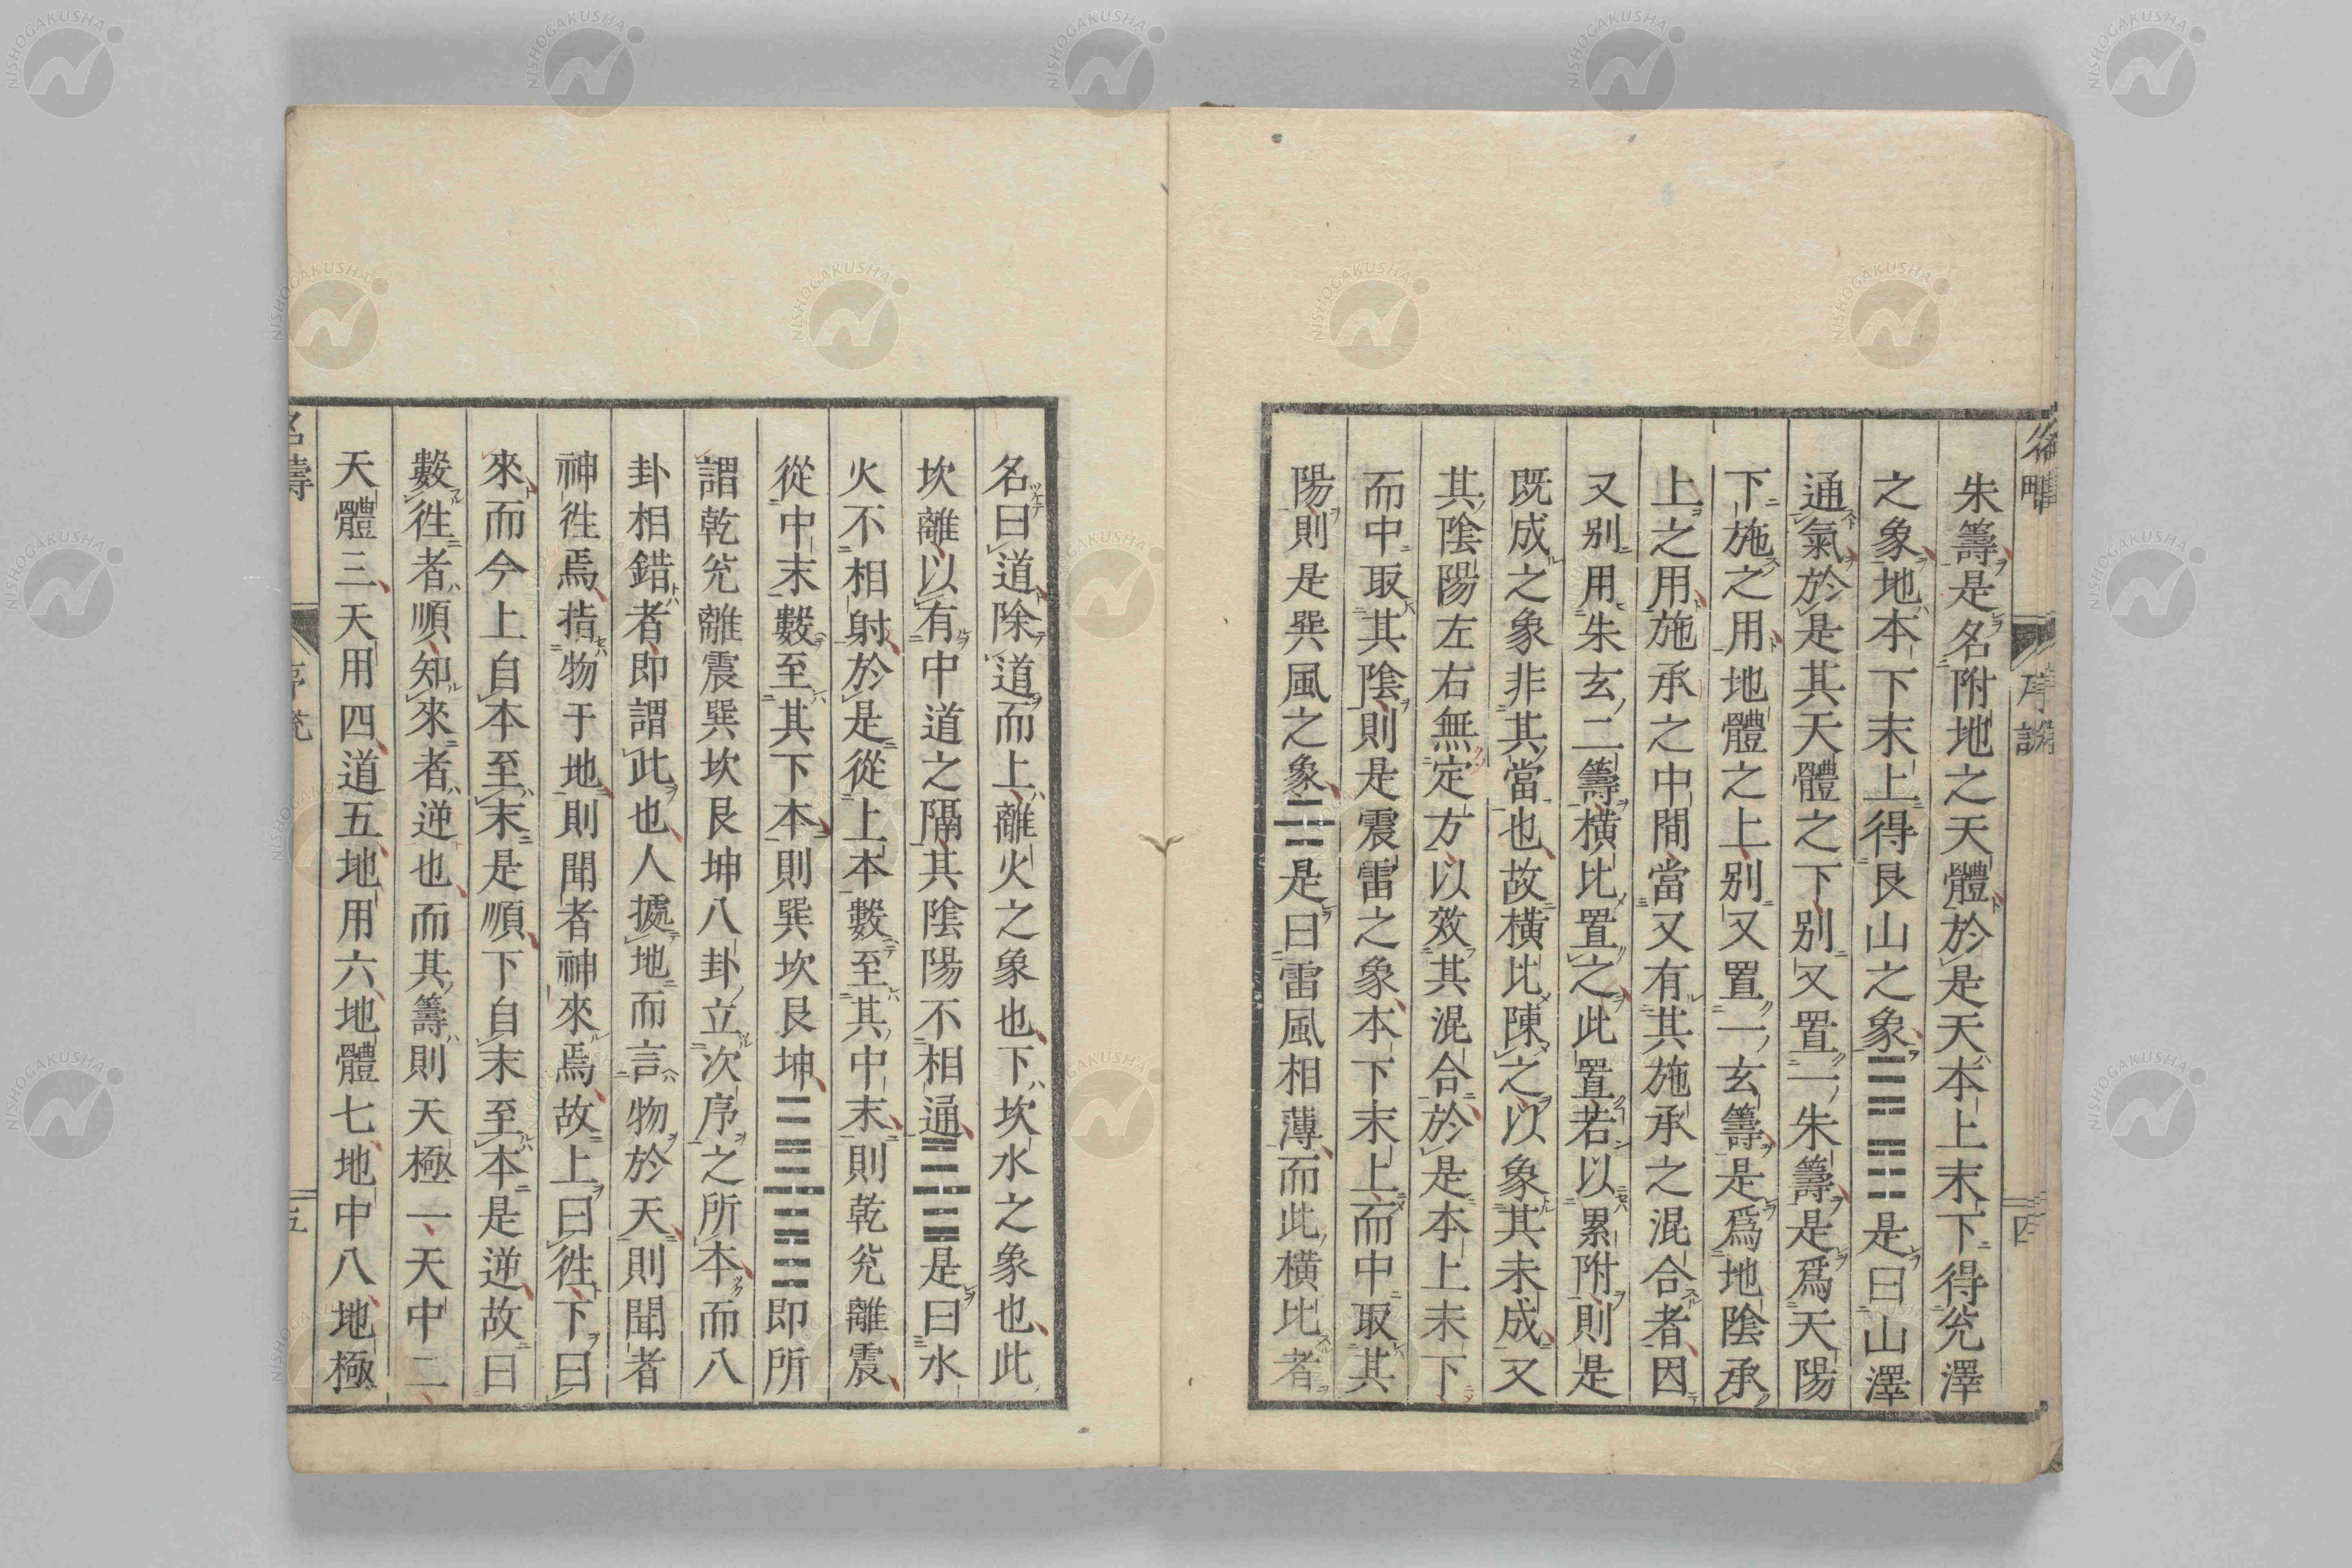 朱籌是名附地之天體於是天本上末下得兊澤
之象地本下末上得艮山之象☶☷是曰山澤
通氣於是其天體之下別又置一朱籌是爲天陽
下施之用地體之上別又置一玄籌是爲地陰承
上之用施承之中間當又有其施承之混合者因
又別用朱玄二籌橫比置之此置若以累附則是
既成之象非其當也故橫比陳之以象其未成又
其陰陽左右無定方以效其混合於是本上末下
而中取其陰則是震雷之象本下末上而中取其
陽則是巽風之象是曰雷風相薄而此橫比者
序說
四
名曰道除道而上離火之象也下坎水之象也此
坎離以有中道之隔其陰陽不相通是曰水
火不相射於是從上本數至其中末則乾兊離震
從中末數至其下本則巽坎艮坤即所
謂乾兊離震巽坎艮坤八卦立次序之所本而八
卦相錯者即謂此也人據地而言物於天則聞者
神徃焉指物于地則聞者神來焉故上曰徃下曰
來而今上自本至末是順下自末至本是逆故曰
數徃者順知來者逆也而其籌則天極一天中二
天體三天用四道五地用六地體七地中八地極
五
NISHOGAKUSHA